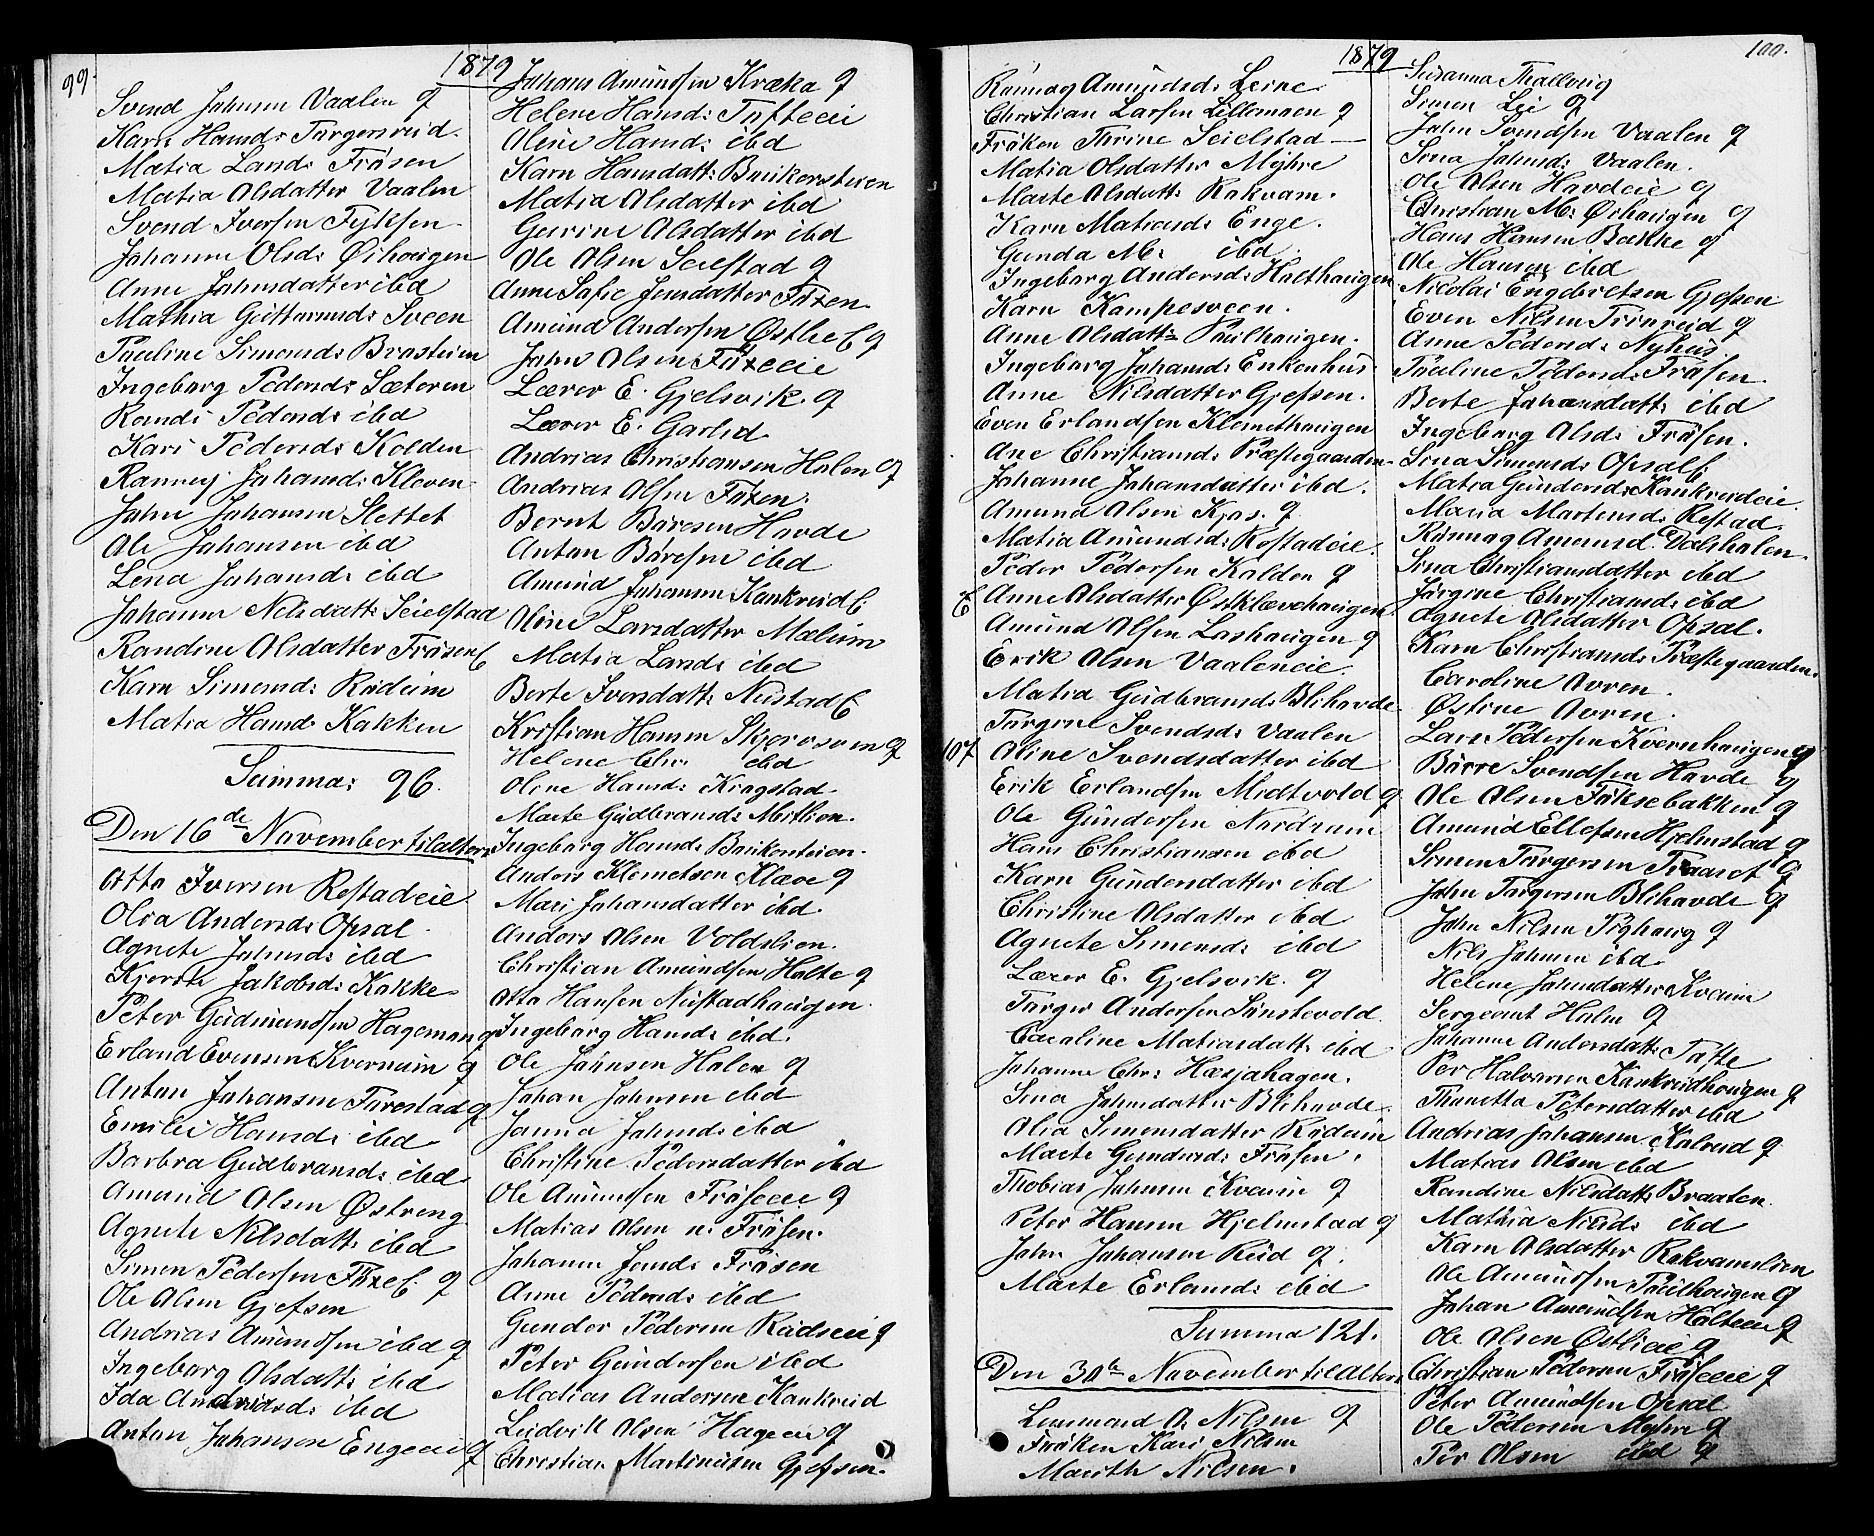 99.
1879
Svend Johnsen Vaalen q
Kari Hansd: Torgersreid.
Matia Larsd: Frösen
Matia Olsdatter Vaalen
Svend Iversen Fyksen
Johanne Olsd: Öihaugen
Anne Johnsdatter ibd
Mathia Guttormsd: Sveen
Pauline Simensd: Brosteien
Ingeborg Pedersd: Sæteren
Randi Pedersd: ibd
Kari Pedersd: Kolden
Rannei Johansd: Kleven
John Johansen Slettet
Ole Johansen ibd
Lena Johansd: ibd
Johanne Nilsdatt: Seielstad
Randine Olsdatter Frösen
Karn Simensd: Rudeim
Matia Hansd: Kakken
Summa: 96.
Den 16de November tilalters
Otto Iversen Refstadeie
Olia Andersd: Opsal
Agnete Johnsd: ibd
Kjersti Jakobsd: Kakke
Peter Gudmundsen Hageman q
Erland Evensen Kvernum q
Anton Johansen Forestad q
Emilie Hansd: ibd
Barbra Gudbransd: ibd
Amund Olsen Östreng
Agnete Nilsdatt: ibd
Simen Pedersen q
Ole Olsen Gjefsen
Andrias Amundsen ibd q
Ingeborg Olsdatt: ibd
Ida ibd
Anton Johansen Engeeie q
Johans Amundsen Kræka q
Helene Hansd: Tofteeie
Oline Hansd: ibd
Karn Hansdatt: Baukersteien
Matia Olsdatter ibd
Gurine Olsdatter ibd
Ole Olsen Seielstad q
Anne Sofie Jensdatter Foxen
Amund Andersen Östlie q
John Olsen Foxeeie
Lærer E. Gjelsvik. q
Lærer E. Garlid
Andrias Christiansen Holen q
Andrias Olsen Foxen.
Bernt Böresen Hovde
Anton Böresen ibd
Amund Johansen Kankerud
Oline Larsdatter Mælum
Matia Larsd: ibd
Berte Iversdatt: Nustad
Kristian Hansen q
Helene Chr: ibd
Oline Hansd: Kragstad
Marte Gudbransd: Mithien.
Ingeborg Hansd: Baukersteien.
Anders Klemetsen Klæve q
Mari Johansdatter ibd.
Anders Olsen Voldslien.
Christian Amundsen Holte q
Otto Hansen Nustadhaugen.
Ingeborg Hansd: ibd.
Ole Johnsen Holen q
Johan Johnsen ibd
Janna Johnsd: ibd
Christine Pedersdatter ibd
Ole Amundsen Fröseeie q
Matias Olsen n: Frösen.
Johanne Jensd: Frösen
Anne Pedersd: ibd
Gunder Pedersen Rudseie q
Peter Gundersen ibd
Matias Andersen Kankerud
Ludvik Olsen Hageeie q
Christian Martinusen Gjefsen.
100.
1879
Rönnog Amundsd: Leine
Christian Larsen Lillemoen q
Fröken Thrine Seielstad
Matia Olsdatter Myhre
Marte Olsdatt: Rakvam.
Karn Mathiasd: Enge.
Gunda M: ibd.
Ingeborg Andersd: Holthaugen
Karn Kampesveen.
Anne Olsdatt: Paulhaugen.
Ingeborg Johansd: Enkenhus
Anne Nilsdatter Gjefsen.
Even Erlandsen Klemethaugen
Ane Christiansd: Præstegaarden
Johanne Johansdatter ibd.
Amund Olsen Kjos. q
Matia Amundsd: Refstadeie.
Peder Pedersen Kalden q
Anne Olsdatter
Amund Olsen Loshaugen q
Erik Olsen Vaaleneie.
Matia Gudbransd: Blihovde
Torgine Svendsd: Vaalen
107 Oline Svendsdatter ibd
Erik Erlandsen Midtvold q
Ole Gundersen Nordrum
Hans Christiansen ibd
Karn Gundersdatter ibd
Christine Olsdatter ibd
Agnete Simensd: ibd
Lærer E. Gjelsvik. q
Torger Andersen Sönstevold
Caroline Matiasdatt: ibd
Johanne Chr: Hæsjahagen.
Sina Johnsdatter Blihovde
Olia Simensdatter Rudeim
Marte Gundersd: Frösen.
Thobias Johnsen Kveim q
Peter Hansen Hjelmstad q
John Johansen Rud q.
Marte Erlandsd: ibd
Summa 121.
Den 30te November tilalters
Lensmand O. Nilsen q
Fröken Kari Nilsen
Marith Nilsen.
Susanna Thallaug
Simen Lei q
John Svendsen Vaalen q
Sina Johnsd: Vaalen.
Ole Olsen Hovdeie q
Christian M: Örhaugen q
Hans Hansen Bakke q
Ole Hansen ibd
Nicolai Engbretsen Gjefsen
Even Nilsen q
Anne Pedersd: Nyhus
Pauline Pedersd: Frösen.
Berte Johansdatt: ibd
Ingeborg Olsd: Frösen.
Sina Simensd: Opsal
Matia Gundersd: Kankerudeie.
Maria Martinsd: Refstad.
Rönnog Amundsd.
Sina Christiansdatter ibd
Jörgine Christiansd: ibd
Agnete Olsdatter Opsal.
Karn Christiansd: Præstegaarden.
Caroline Avren.
Östine Avren.
Lars Pedersen Kvernhaugen q
Börre Svendsen Hovde q
Ole Olsen Föksebakken q
Amund Ellefsen Hjelmstad q
Simen Torgersen q
John Torgersen Blihovde q
John Nilsen q
Nils Johnsen ibd
Helene Johnsdatter Kveim
Sergeant Holm q
Johanne Andersdatt: Tofte
Per Halvorsen Kankerudhaugen q
Thonetta Petersdatter ibd
Andrias Johansen Kalverd q
Matias Olsen ibd
Randine Nilsdatt: Braaten
Mathia Nilsd: ibd
Karn Olsdatter Rakvamslien
Ole Amundsen Paulhaugen q
Johan Amundsen Holteeie q
Ole Olsen Östlieie q
Christian Pedersen Fröseeie q
Peter Amundsen Opsal
Ole Pedersen Myhre q
Per Olsen ibd q